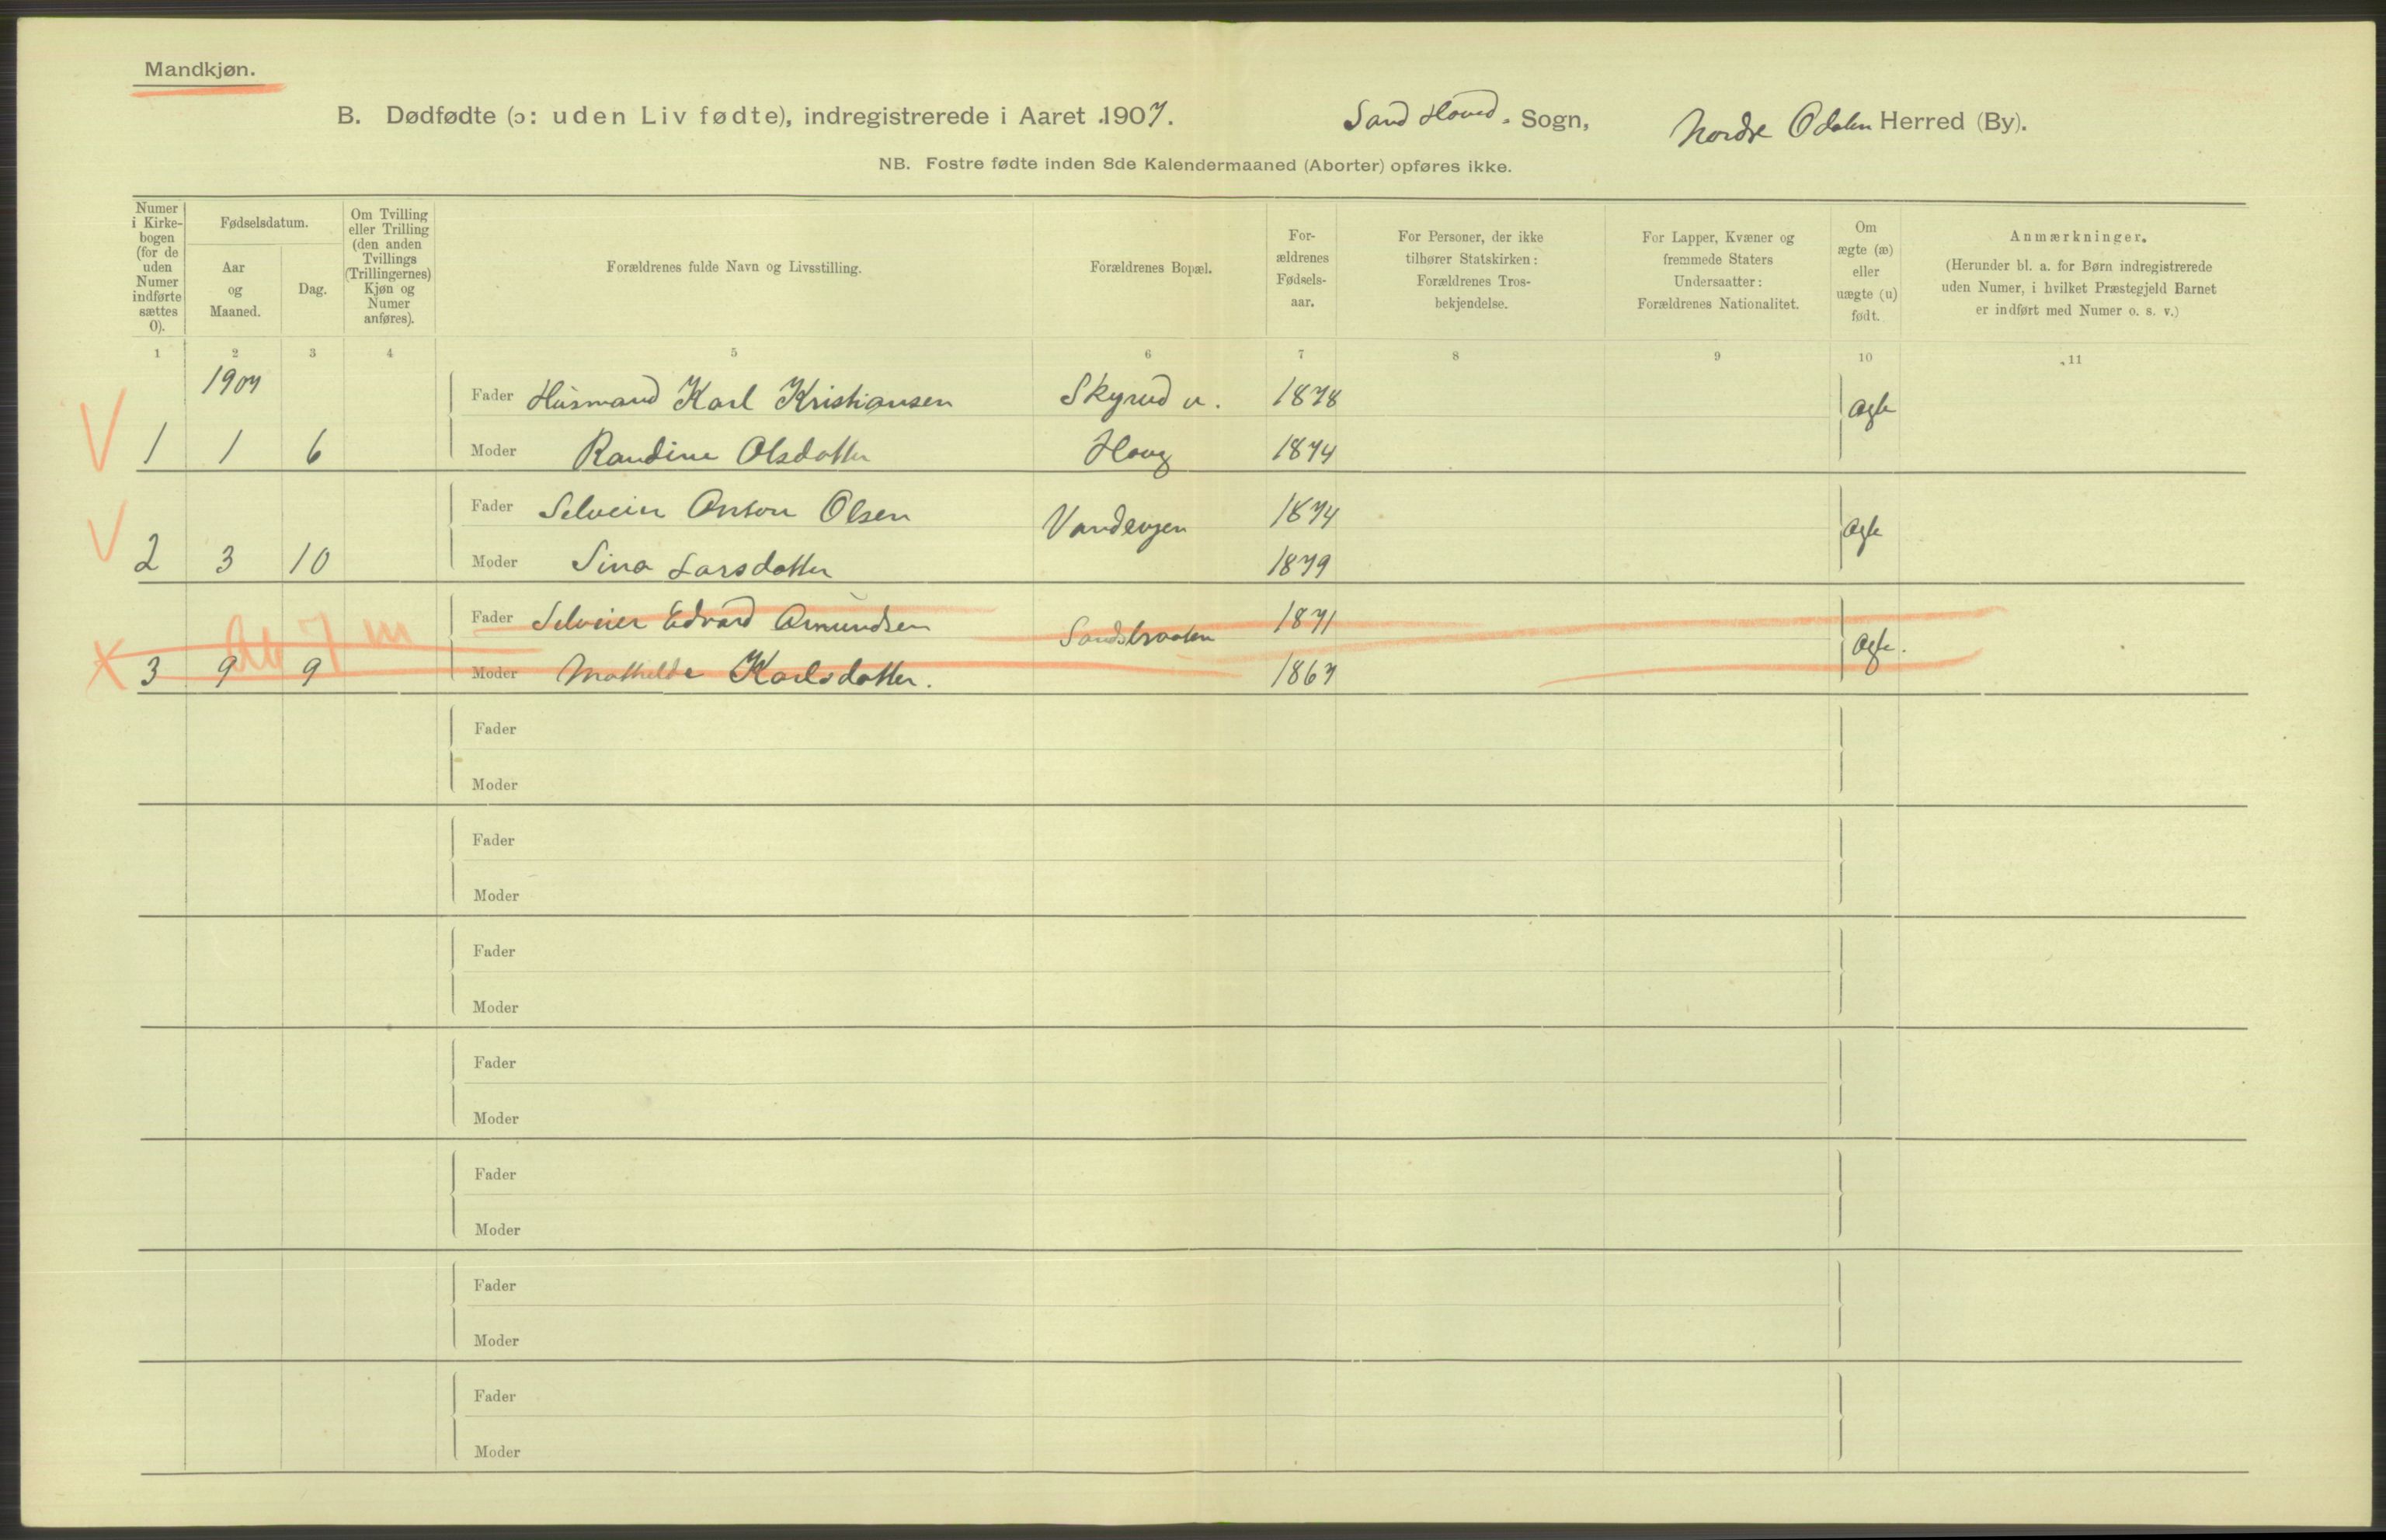 Mandkjøn.
B. Dødfødte (ɔ: uden Liv fødte), indregistrerede i Aaret 1907. Sand Hoved. Sogn, Nordre Odalen Herred (By).
NB. Fostre fødte inden 8de Kalendermaaned (Aborter) opføres ikke.
Numer i Kirke-bogen (for de uden Numer indførte sættes 0).
Fødselsdatum.
Aar og Maaned.
Dag.
Om Tvilling eller Trilling (den anden Tvillings (Trillingernes) Kjøn og Numer anføres).
Forældrenes fulde Navn og Livsstilling.
Forældrenes Bopæl.
For-ældrenes Fødsels-aar.
For Personer, der ikke tilhører Statskirken: Forældrenes Tros-bekjendelse.
For Lapper, Kvæner og fremmede Staters Undersaatter: Forældrenes Nationalitet.
Om ægte (æ) eller uægte (u) født.
Anmærkninger.
(Herunder bl. a. for Børn indregistrerede uden Numer, i hvilket Præstegjeld Barnet er indført med Numer o. s. v.)
1 2 3 4 5 6 7 8 9 10 11
1907
Fader Husmand Karl Kristiansen Skyrud u. 1878 Ægte
V 1 1 6 Moder Randine Olsdatter Houg 1874
Fader Selveier Anton Olsen Vandengen 1874 Ægte
V 2 3 10 Moder Sina Larsdatter 1879
Fader Selveier Edvard Amundsen Sandsbraaten 1871 Ægte.
X 3 9 9 Ab 7 m Moder Mathilde Karlsdatter. 1867
Fader
Moder
Fader
Moder
Fader
Moder
Fader
Moder
Fader
Moder
Fader
Moder
Fader
Moder